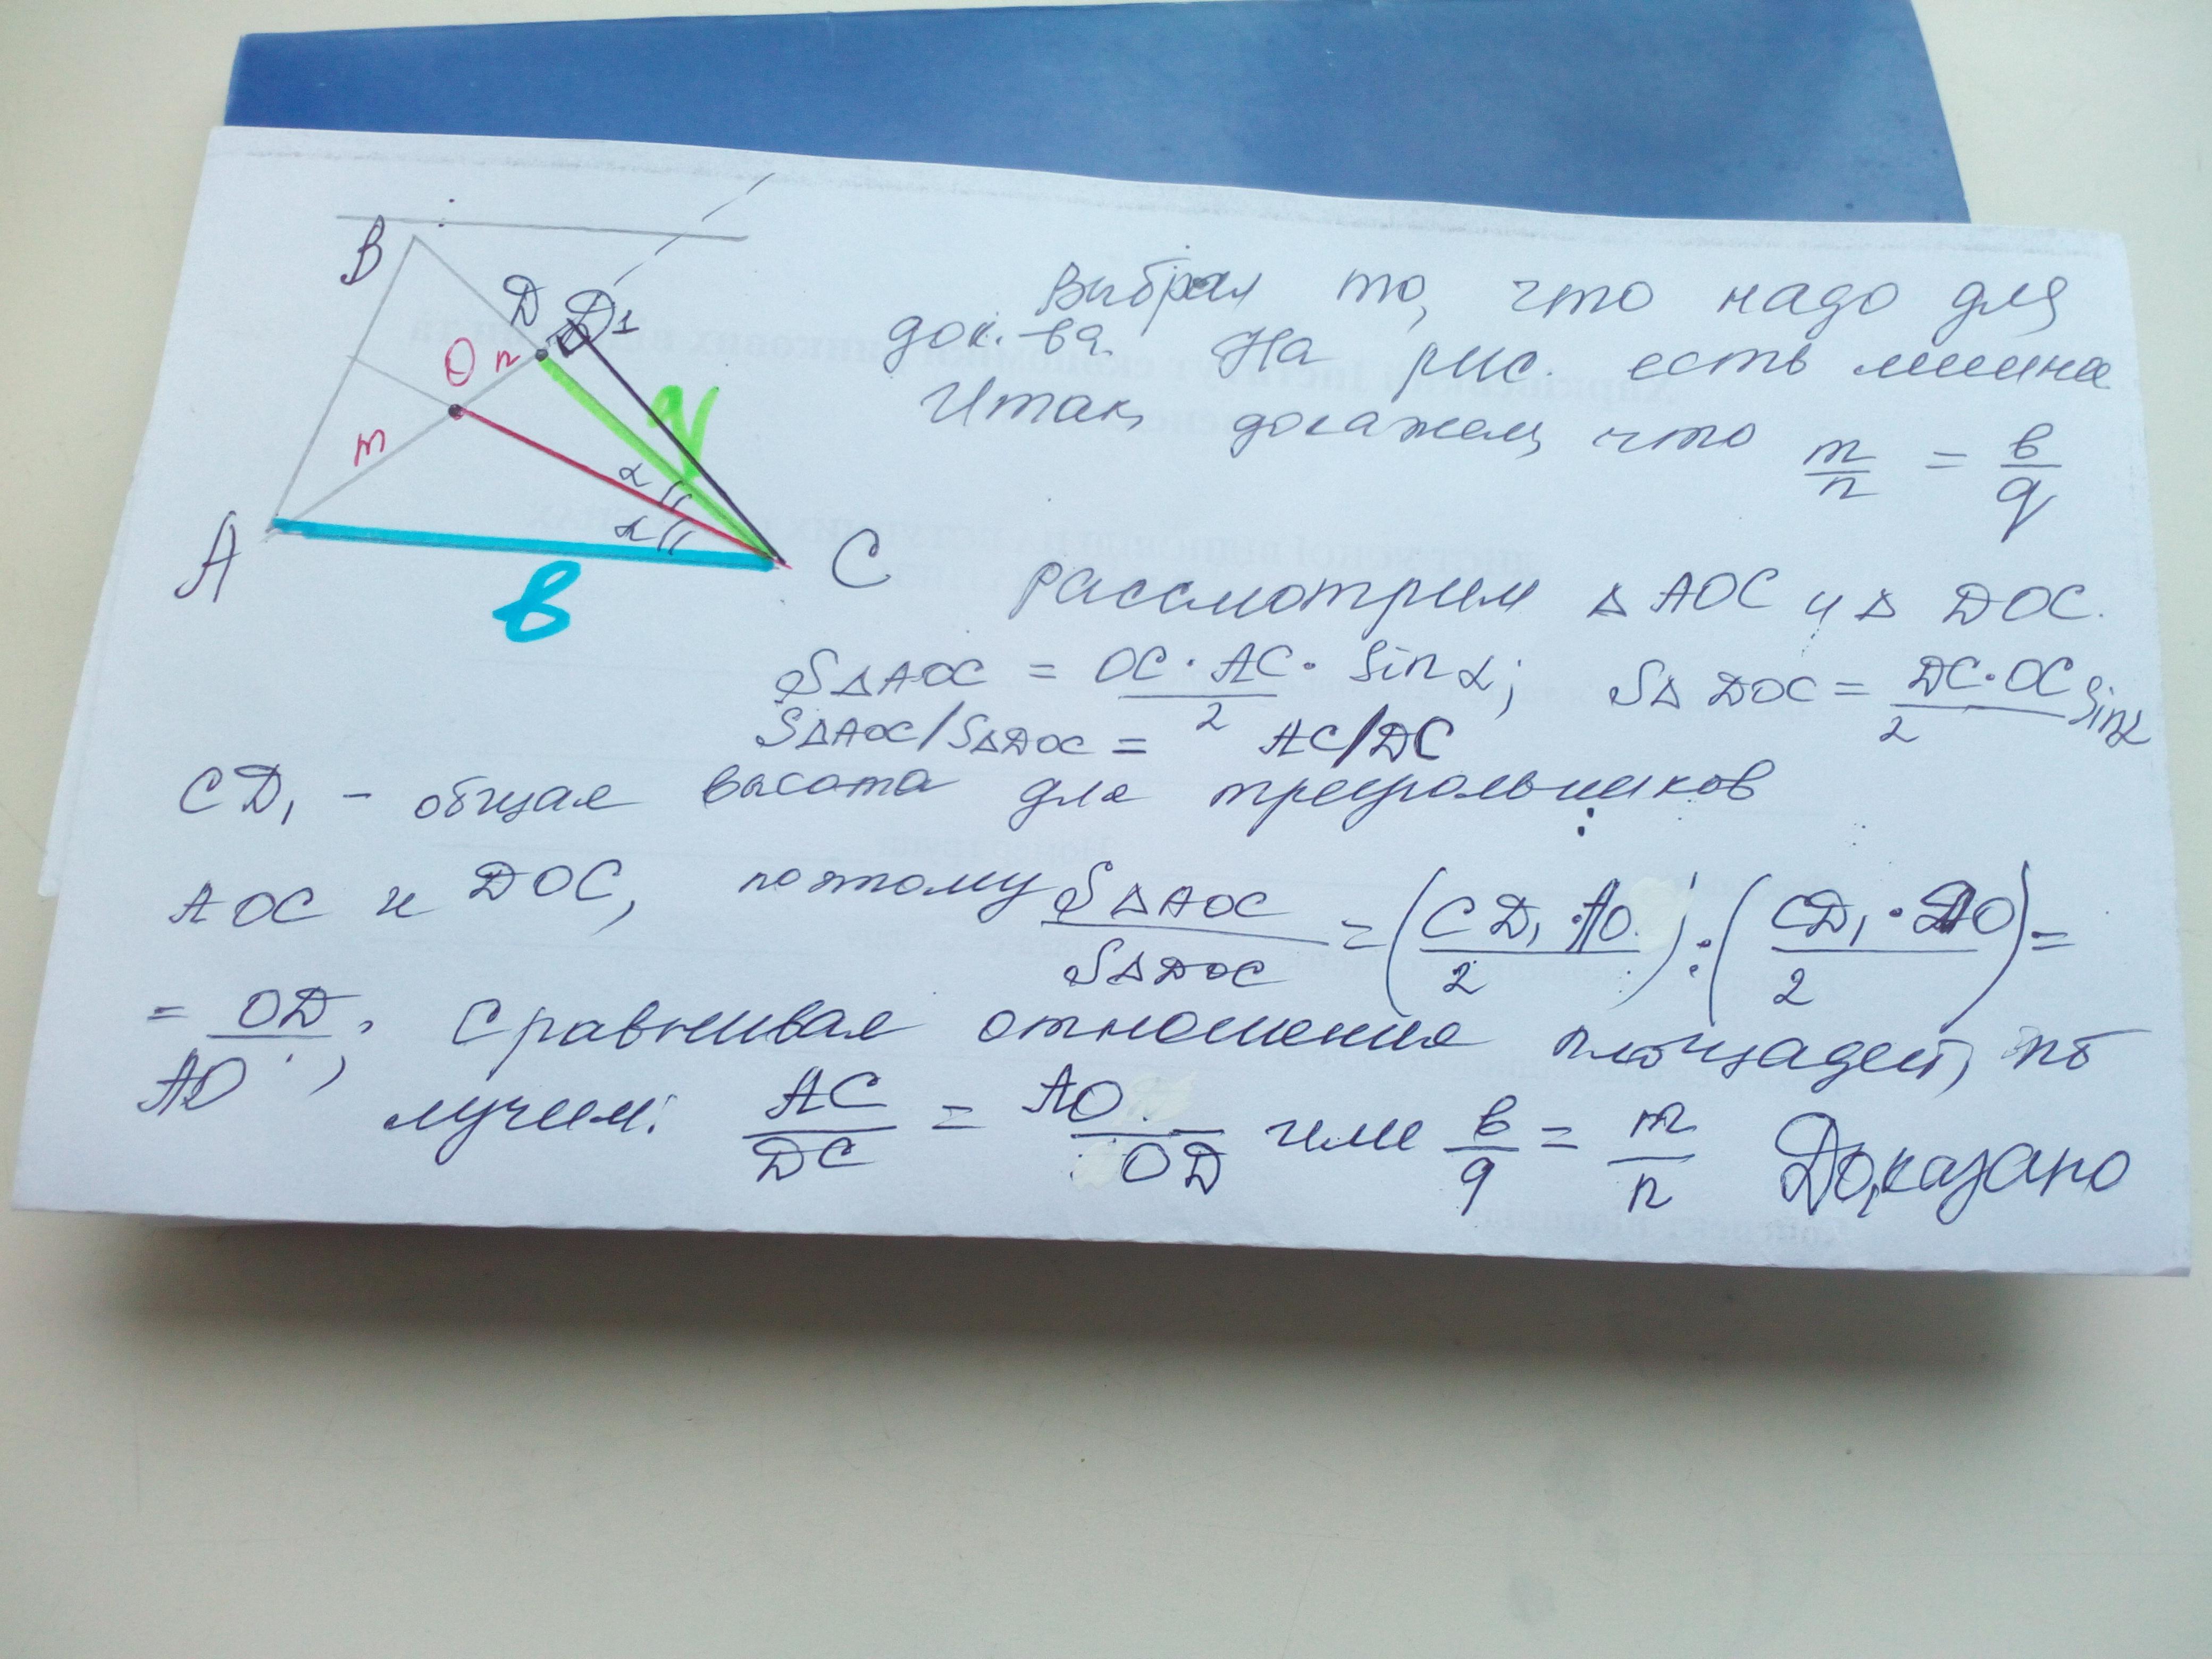 B
D D1
O n
m
q
α
α
A
C
в
Выбрал то, что надо для
док.-ва. На рис. есть лишнее
Итак, докажем, что m/n = в/q
рассмотрим △ AOC и △ DOC.
S△AOC = OC·AC·Sinα/2; S△DOC = DC·OC/2 Sinα
S△AOC/S△DOC = AC/DC
CD₁ - общая высота для треугольников
AOC и DOC, поэтому S△AOC/S△DOC = (CD₁·AO/2) : (CD₁·DO/2) =
= OD/AO; Сравнивая отношения площадей, по
лучим: AC/DC = AO/OD или в/q = m/n Доказано